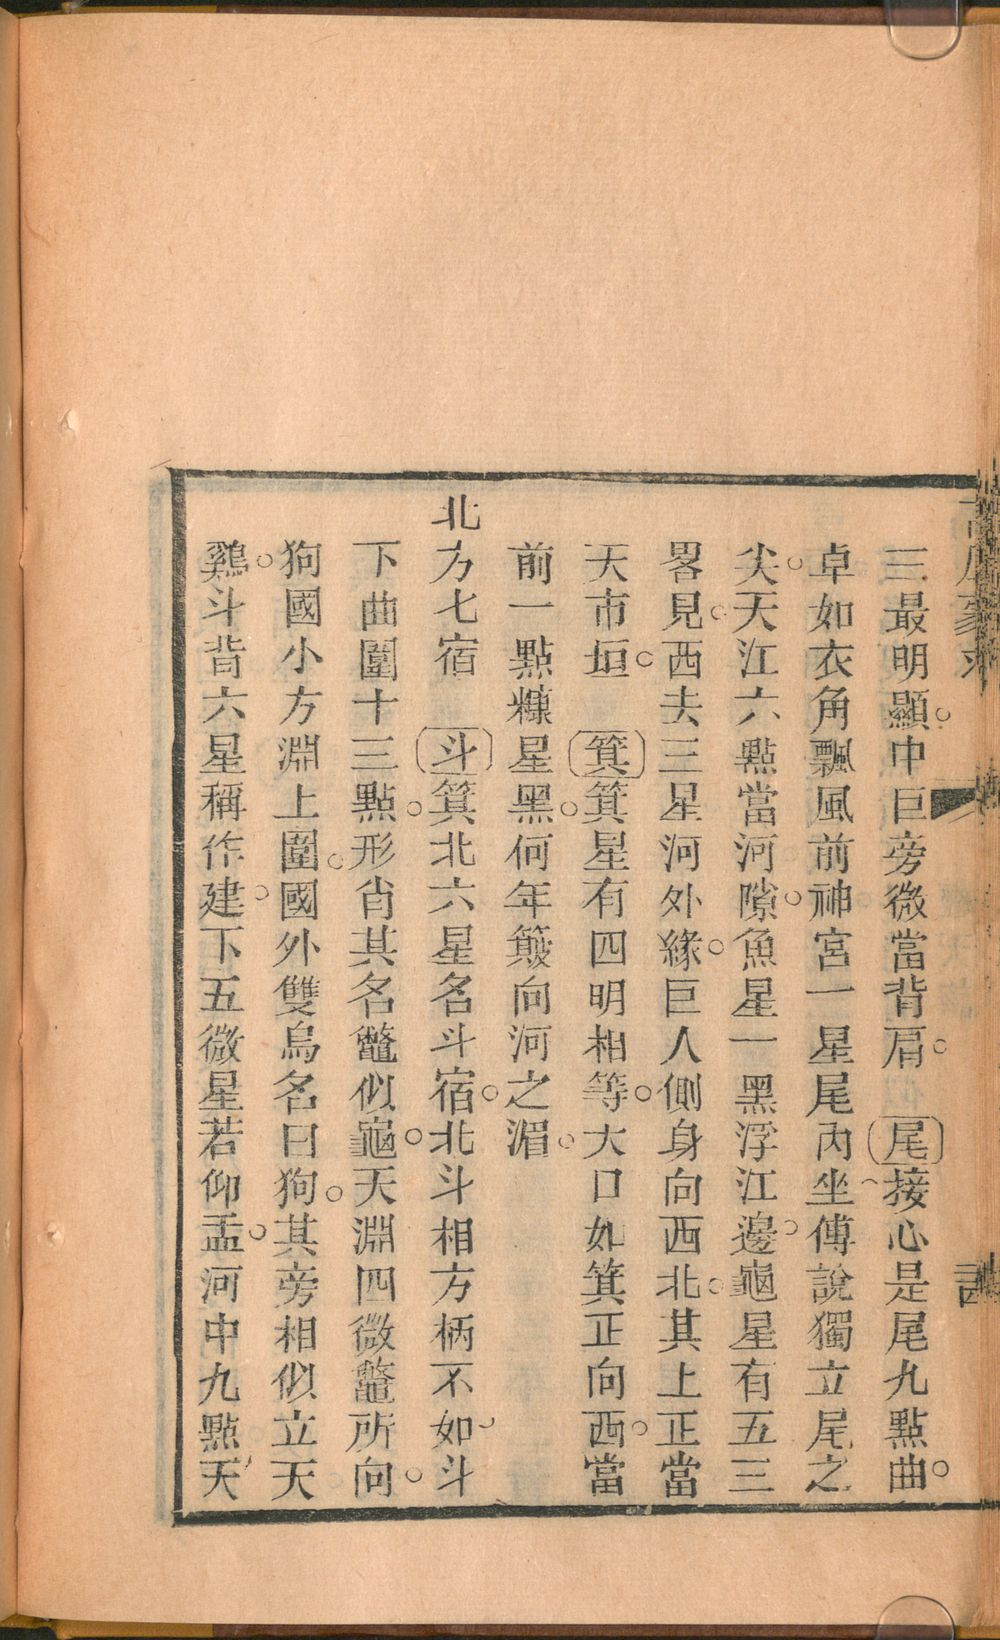 三最明顯。中巨旁微當背眉。尾接心是尾九點曲。
卓如衣角飄風前神宮一星尾內坐傅說獨立尾之
尖。天江六點當河隙。魚星一黑浮江邊。龜星有五三
畧見。西去三星河外緣。巨人側身向西北。其上正當
天市垣。箕箕星有四明相等。大口如箕正向西。當
前一點糠星黑。何年簸向河之湄。
北方七宿 斗箕北六星名斗宿。北斗相方柄不如斗
下曲圍十三點。形肖其名鼈似龜。天淵四微鼈所向。
狗國小方淵上圍。國外雙烏名曰狗。其旁相似立天
鷄。斗背六星稱作建。下五微星若仰盂。河中九點天